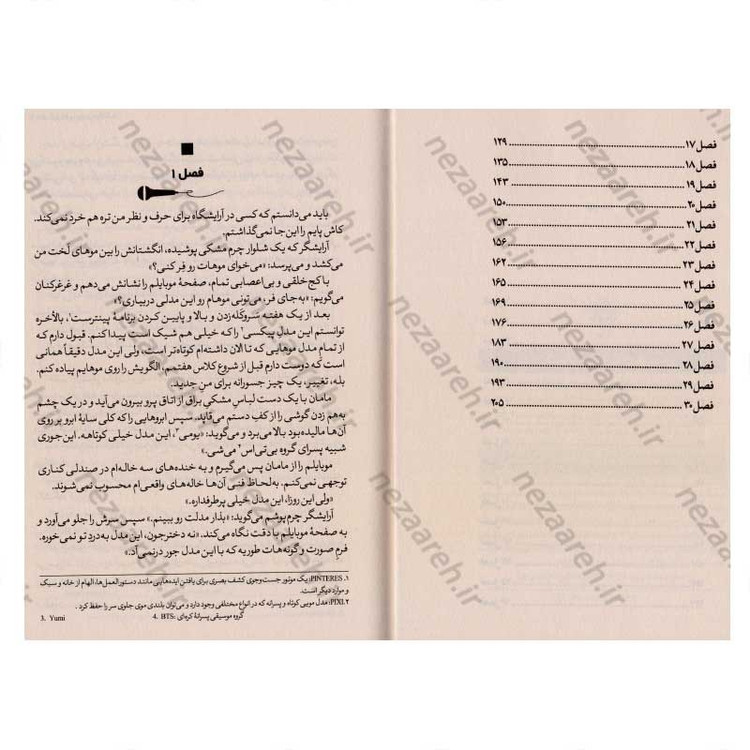 فصل ۱۷ ........ ۱۲۹
فصل ۱۸ ........ ۱۳۵
فصل ۱۹ ........ ۱۴۳
فصل ۲۰ ........ ۱۵۰
فصل ۲۱ ........ ۱۵۳
فصل ۲۲ ........ ۱۵۶
فصل ۲۳ ........ ۱۶۲
فصل ۲۴ ........ ۱۶۵
فصل ۲۵ ........ ۱۶۹
فصل ۲۶ ........ ۱۷۶
فصل ۲۷ ........ ۱۸۳
فصل ۲۸ ........ ۱۹۰
فصل ۲۹ ........ ۱۹۳
فصل ۳۰ ........ ۲۰۵
فصل ۱
باید می‌دانستم که کسی در آرایشگاه برای حرف و نظر من تره هم خرد نمی‌کند.
کاش پایم را این‌جا نمی‌گذاشتم.
آرایشگر که یک شلوار چرم مشکی پوشیده، انگشتانش را بین موهای لَخت من
می‌کشد و می‌پرسد: «می‌خوای موهات رو فِر کنی؟»
با کج‌خلقی و بی‌اعصابی تمام، صفحهٔ موبایلم را نشانش می‌دهم و غرغرکنان
می‌گویم: «به‌جای فر، می‌تونی موهام رو این مدلی دربیاری؟»
بعد از یک هفته سَروکله‌زدن و بالا و پایین کردن برنامهٔ پینترست۱، بالأخره
توانستم این مدل پیکسی۲ را که خیلی هم شیک است پیدا کنم. قبول دارم که
از تمام مدل موهایی که تا الان داشته‌ام کوتاه‌تر است، ولی این مدل دقیقاً همانی
است که دوست دارم قبل از شروع کلاس هفتمم، الگویش را روی موهایم پیاده کنم.
بله، تغییر، یک چیز جسورانه برای منِ جدید.
مامان با یک دست لباسِ مشکی براق از اتاق پرو بیرون می‌آید و در یک چشم
به‌هم زدن گوشی را از کفِ دستم می‌قاپد. سپس ابروهایی را که کلی سایهٔ ابرو بر روی
آن‌ها مالیده بود بالا می‌برد و می‌گوید: «یومی۳، این مدل خیلی کوتاهه. این‌جوری
شبیه پسرای گروه بی‌تی‌اس۴ می‌شی.»
موبایلم را از مامان پس می‌گیرم و به خنده‌های سه خاله‌ام در صندلی کناری
توجهی نمی‌کنم. به‌لحاظ فنی آن‌ها خاله‌های واقعی‌ام محسوب نمی‌شوند.
«ولی این روزا، این مدل خیلی پرطرفداره.»
آرایشگر چرم‌پوشم می‌گوید: «بذار مدلت رو ببینم.» سپس سرش را جلو می‌آورد و
به صفحهٔ موبایلم با دقت نگاه می‌کند. «نه دخترجون، این مدل به‌دردِ تو نمی خوره.
فرمِ صورت و گونه‌هات طوریه که با این مدل جور درنمی‌آد.»
۱. PINTERES: یک موتور جست‌وجوی کشف بصری برای یافتنِ ایده‌هایی مانند دستورالعمل‌ها، الهام از خانه و سبک
و موارد دیگر است.
۲. PIXI: مدل مویی کوتاه و پسرانه که در انواع مختلفی وجود دارد و می‌توان بلندی موی جلوی سر را حفظ کرد.
3. Yumi
4. BTS: گروه موسیقی پسرانهٔ کره‌ای
nezaareh.ir
nezaareh.ir
nezaareh.ir
nezaareh.ir
nezaareh.ir
nezaareh.ir
nezaareh.ir
nezaareh.ir